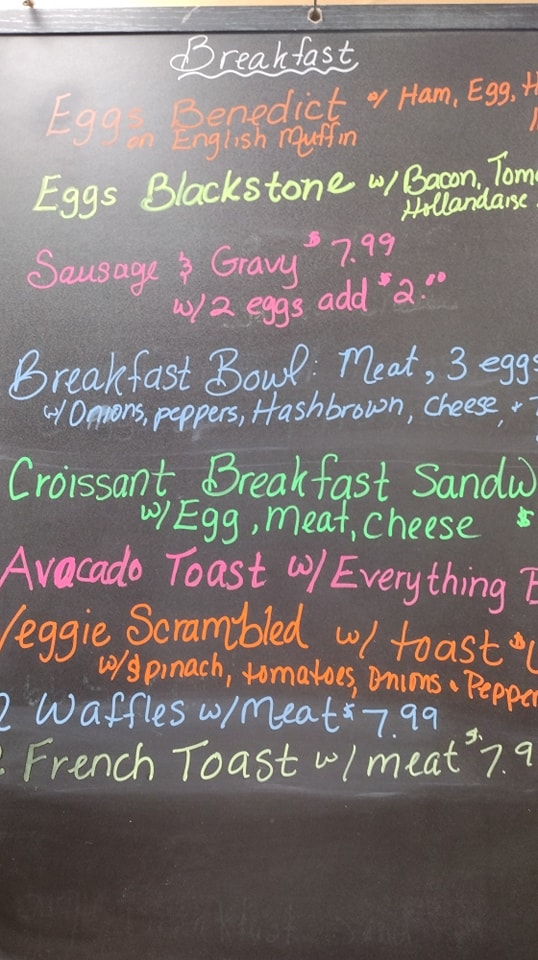 Breakfast
Eggs Benedict w/ Ham, Egg, H
on English Muffin
Eggs Blackstone w/ Bacon, Tom
Hollandaise
Sausage & Gravy $7.99
w/ 2 eggs add $2.00
Breakfast Bowl: Meat, 3 eggs
w/ Onions, peppers, Hashbrown, Cheese, +
Croissant Breakfast Sandw
w/ Egg, Meat, Cheese $
Avocado Toast w/ Everything B
Veggie Scrambled w/ toast $
w/ Spinach, tomatoes, Onions & Pepper
2 Waffles w/ Meat $7.99
2 French Toast w/ meat $7.9